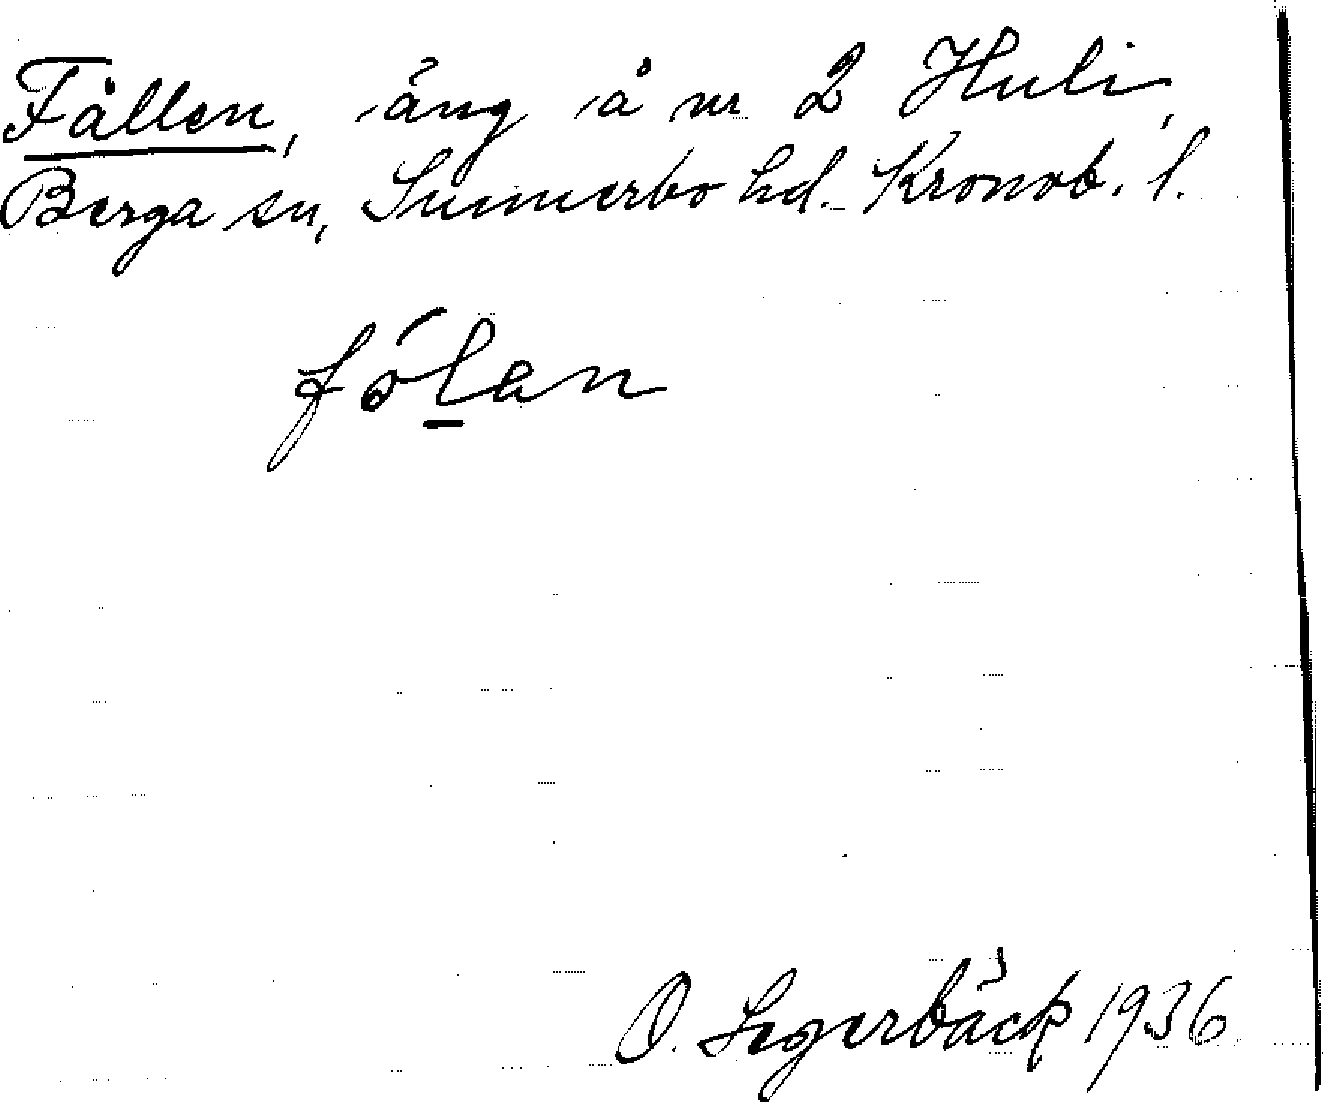 Fällen, äng å nr 2 Huli,
Berga sn, Sunnerbo hd. Kronob. l.
fólan
O. Segerbäck 1936